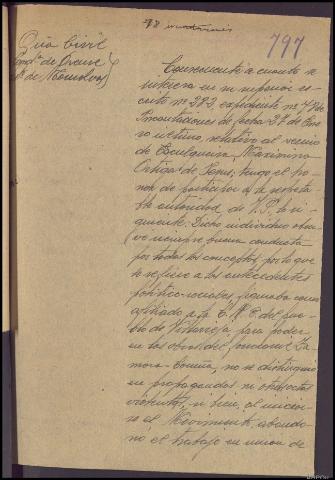 797
Gua Civil
Comd.ª de Orense
Concerniente a cuanto se
interesa en su superior es-
crito nº 223, expediente nº 
Incautaciones de fecha 27 de Ene-
ro último, relativo al vecino
de Esculqueira, Maximino
Ortiga de Jesus; tengo el ho-
nor de participar a la respeta-
ble autoridad de V.S. lo si-
guiente: Dicho individuo obser-
vó siempre buena conducta
por todos los conceptos, por lo que
se refiere a los antecedentes
politico-sociales figuraba como
afiliado a la C.N.T. del pue-
blo de Villavieja para poder
en las obras del ferrocarril Za-
mora-Coruña, no se distinguio
en propagandas ni otros actos
violentos, si bien, al iniciar-
se el Movimiento, abando-
nó el trabajo en union de